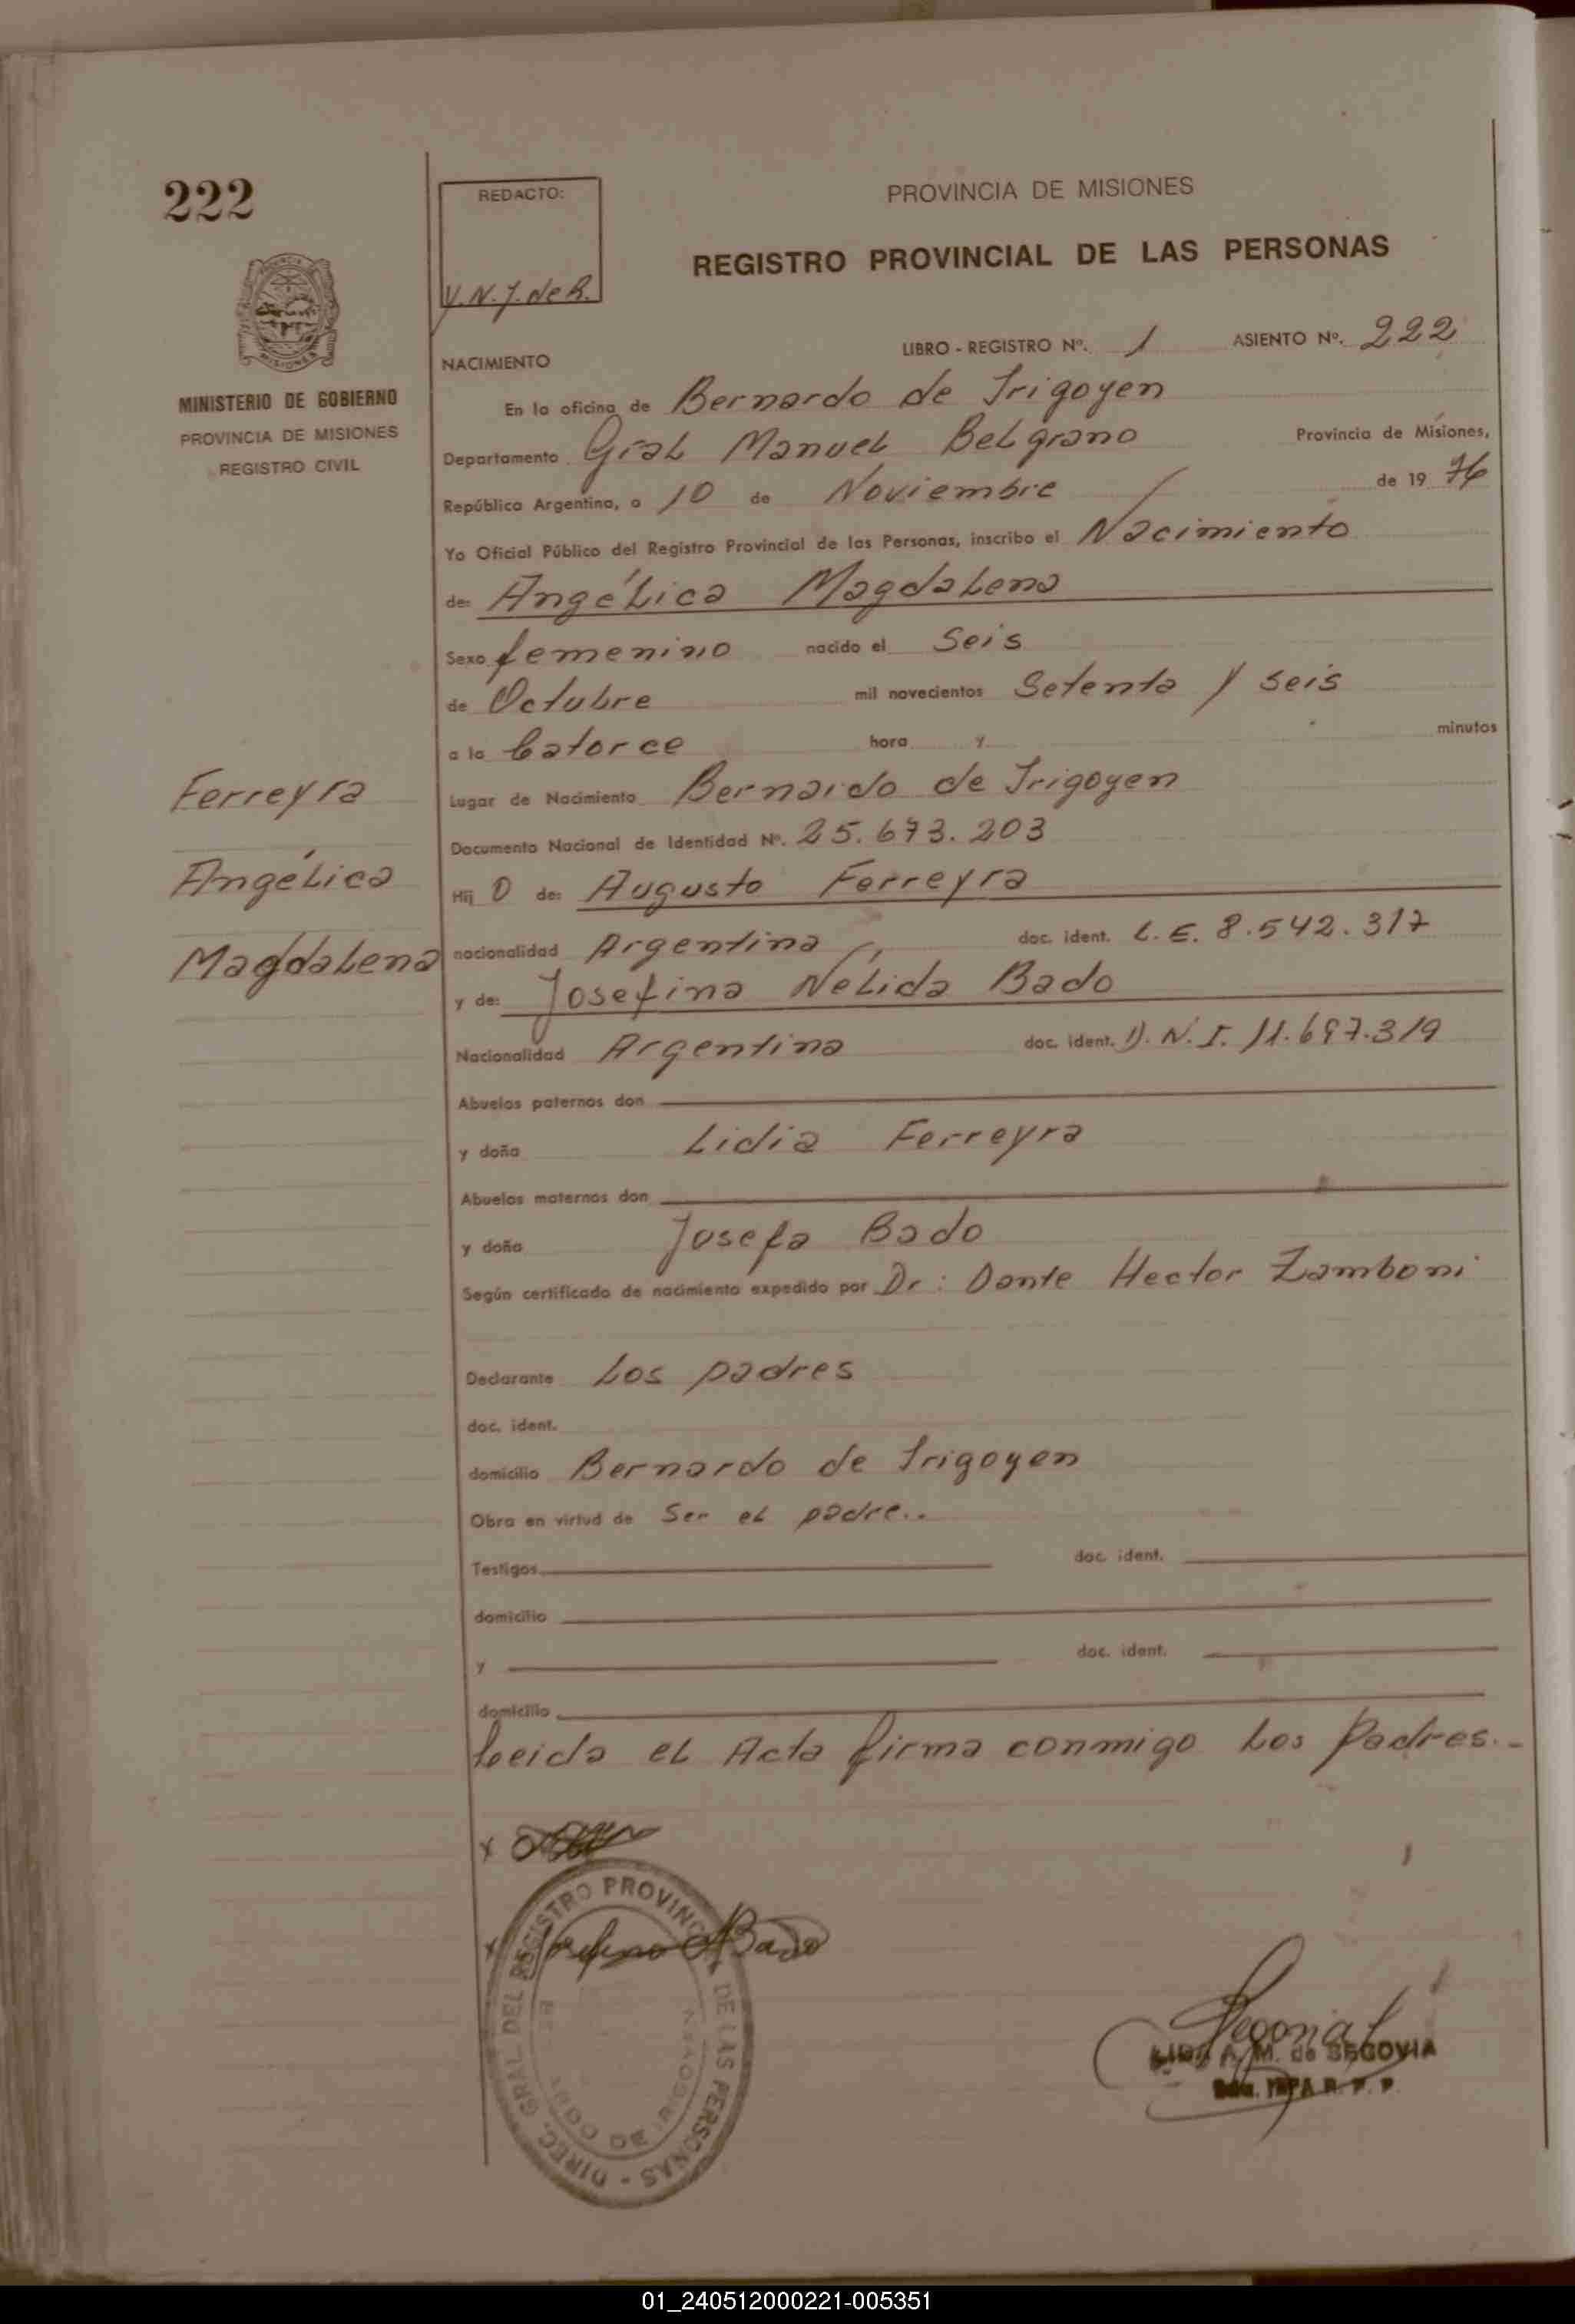 222
REDACTO:
V.N.J. de R.
PROVINCIA DE MISIONES
REGISTRO PROVINCIAL DE LAS PERSONAS
MINISTERIO DE GOBIERNO
PROVINCIA DE MISIONES
REGISTRO CIVIL
NACIMIENTO LIBRO - REGISTRO Nº. 1 ASIENTO Nº. 222
En la oficina de Bernardo de Irigoyen
Departamento Gral Manuel Belgrano Provincia de Misiones,
República Argentina, a 10 de Noviembre de 19 76
Yo Oficial Público del Registro Provincial de las Personas, inscribo el Nacimiento
de: Angélica Magdalena
Sexo femenino nacido el Seis
de Octubre mil novecientos Setenta y seis
a la Catorce hora y minutos
Ferreyra
Angélica
Magdalena
Lugar de Nacimiento Bernardo de Irigoyen
Documento Nacional de Identidad Nº. 25.673.203
Hij a de: Augusto Ferreyra
nacionalidad Argentina doc. ident. L.E. 8.542.317
y de: Josefina Nélida Bado
Nacionalidad Argentina doc. ident. D.N.I. 11.697.319
Abuelos paternos don
y doña Lidia Ferreyra
Abuelos maternos don
y doña Josefa Bado
Según certificado de nacimiento expedido por Dr: Dante Hector Zamboni
Declarante Los padres
doc. ident.
domicilio Bernardo de Irigoyen
Obra en virtud de Ser el padre..
Testigos doc. ident.
domicilio
y doc. ident.
domicilio
Leida el Acta firma conmigo los Padres.-
x
x Josefina N Bado
DIREC. GRAL. DEL REGISTRO PROVINCIAL DE LAS PERSONAS -
BERNARDO DE IRIGOYEN
Segovia
LIDA A. M. de SEGOVIA
R. P. P.
01_240512000221-005351